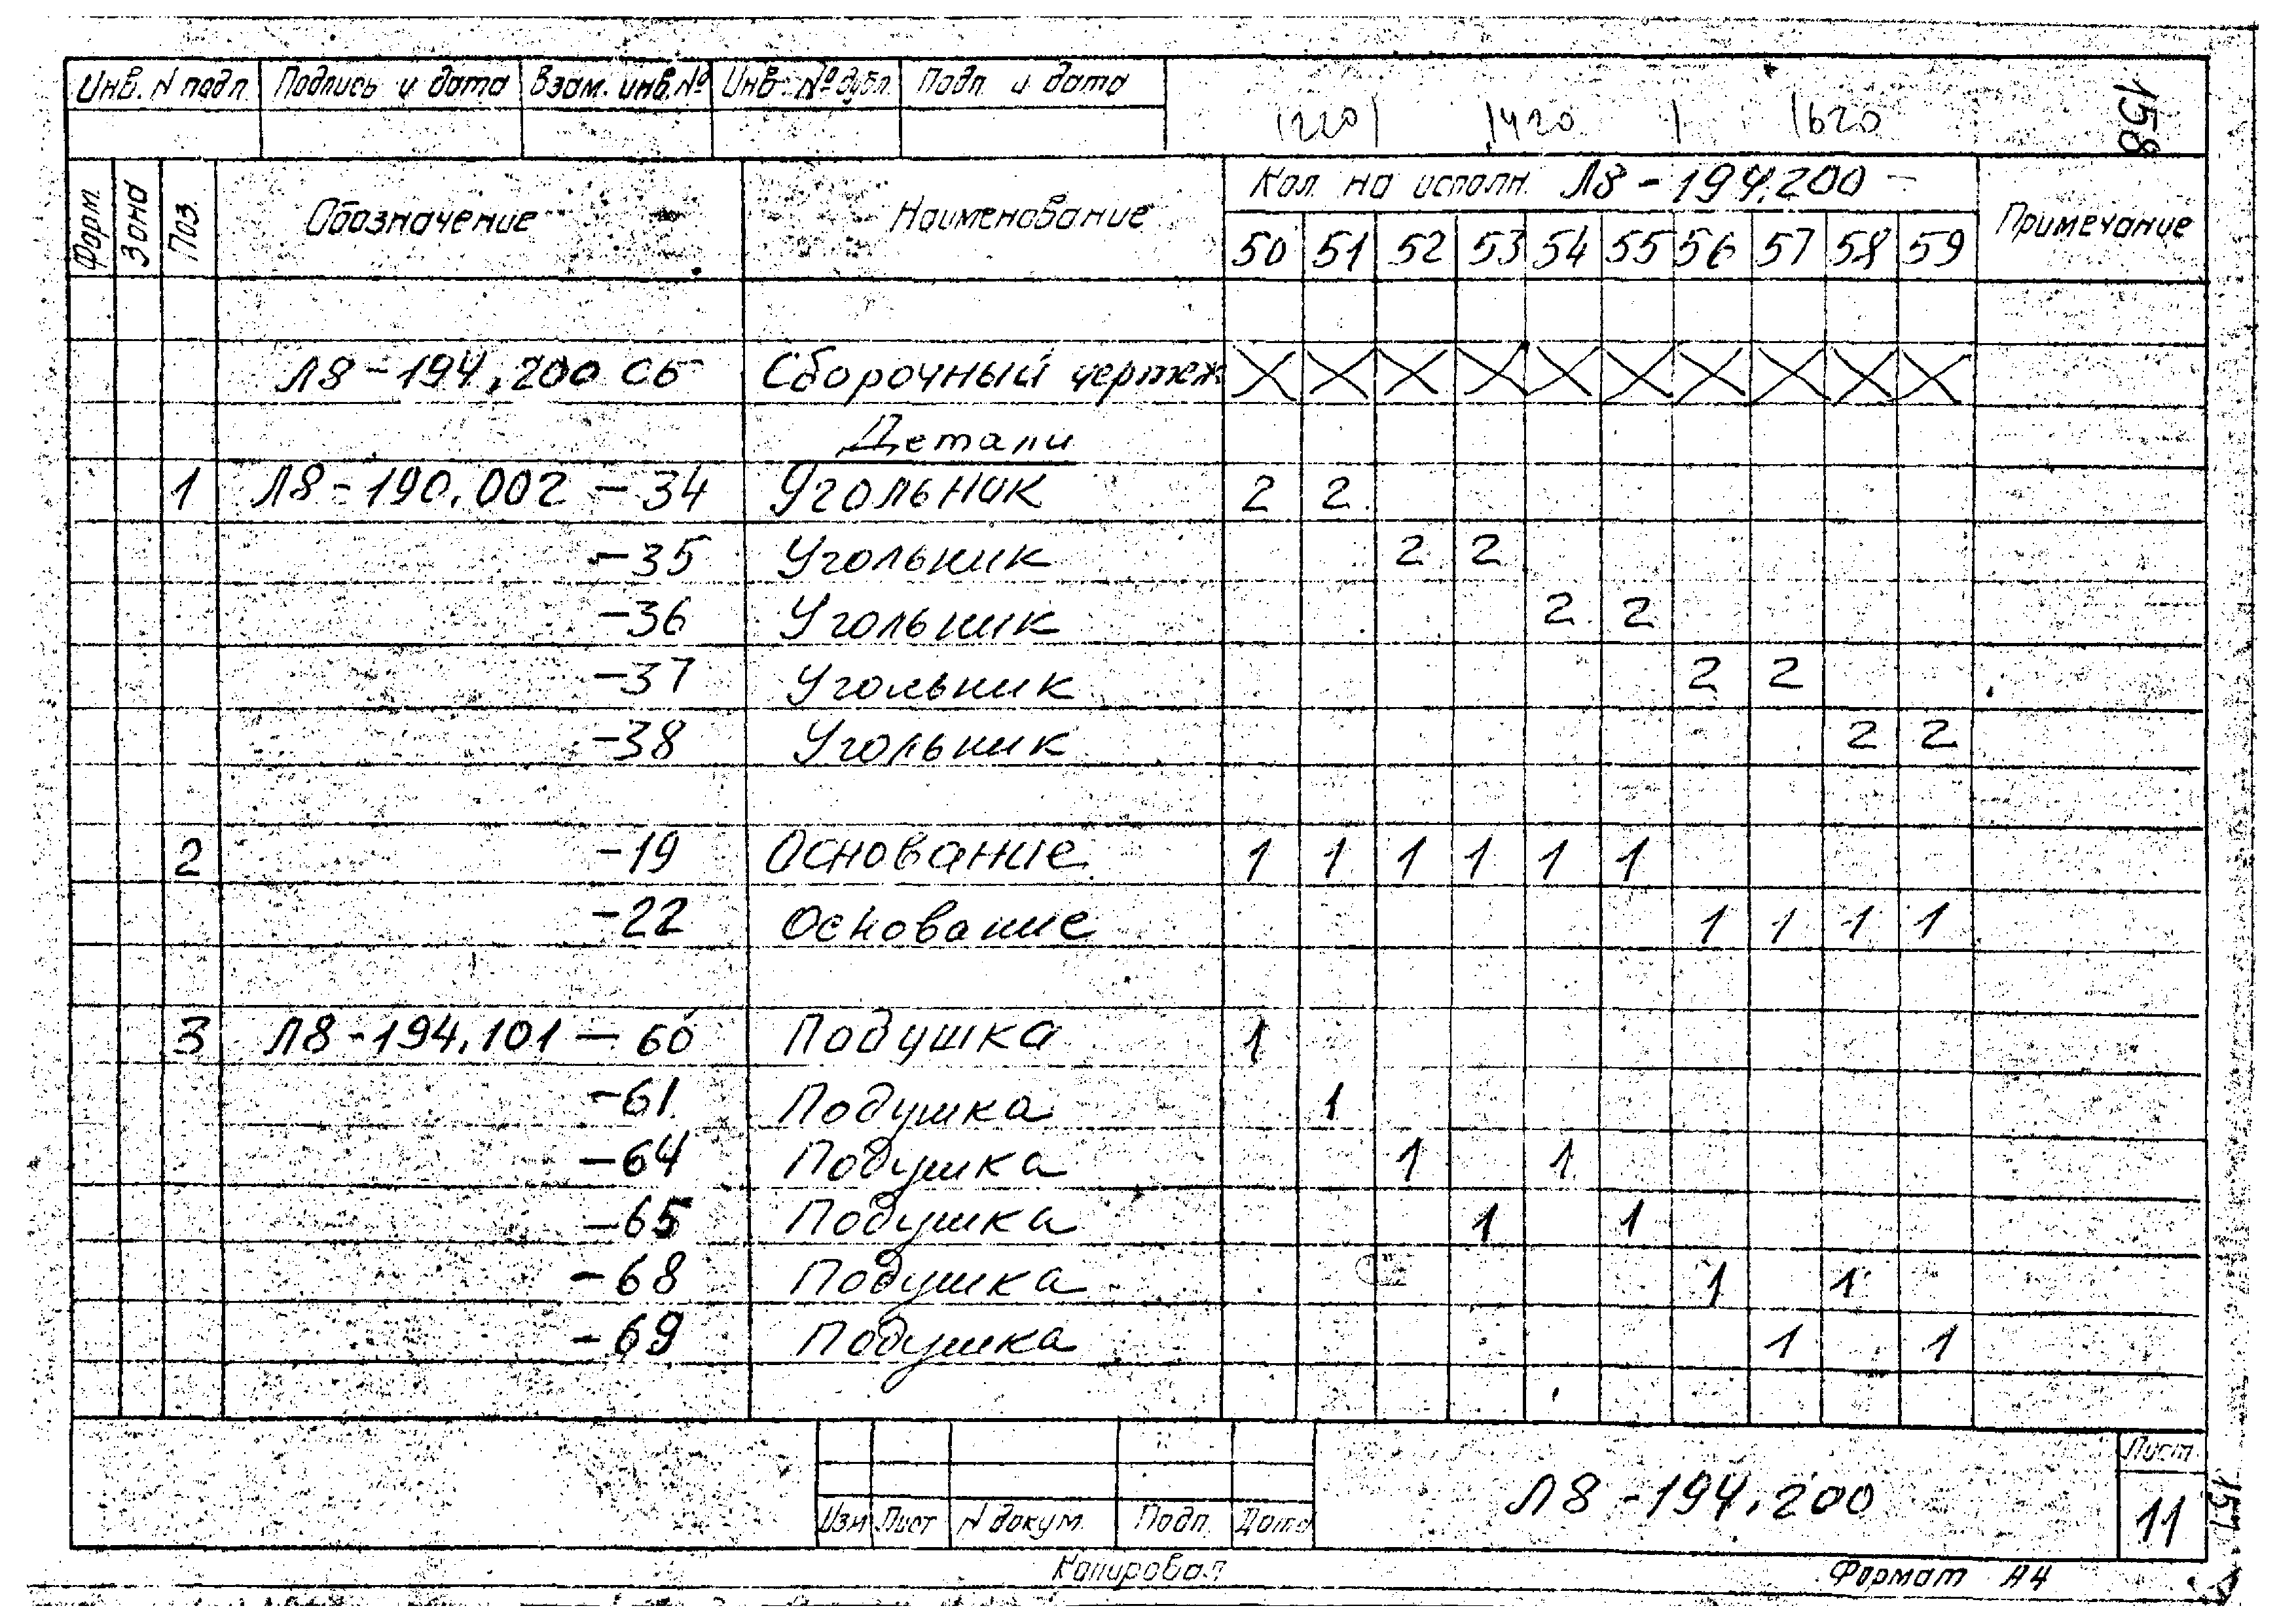 Инв. N подл. Подпись и дата Взам. инв. № Инв. № дубл. Подп. и дата
1220 1420 1620
158
Форм. Зона Поз. Обозначение Наименование Кол. на исполн. Л8-194.200- Примечание
50 51 52 53 54 55 56 57 58 59
Л8-194.200 СБ Сборочный чертеж X X X X X X X X X X
Детали
1 Л8-190.002 -34 Угольник 2 2
-35 Угольник 2 2
-36 Угольник 2 2
-37 Угольник 2 2
-38 Угольник 2 2
2 -19 Основание 1 1 1 1 1 1
-22 Основание 1 1 1 1
3 Л8-194.101 -60 Подушка 1
-61 Подушка 1
-64 Подушка 1 1
-65 Подушка 1 1
-68 Подушка 1 1
-69 Подушка 1 1
Изм Лист N докум. Подп. Дата
Л8-194.200
Лист
11
157
Копировал Формат А4